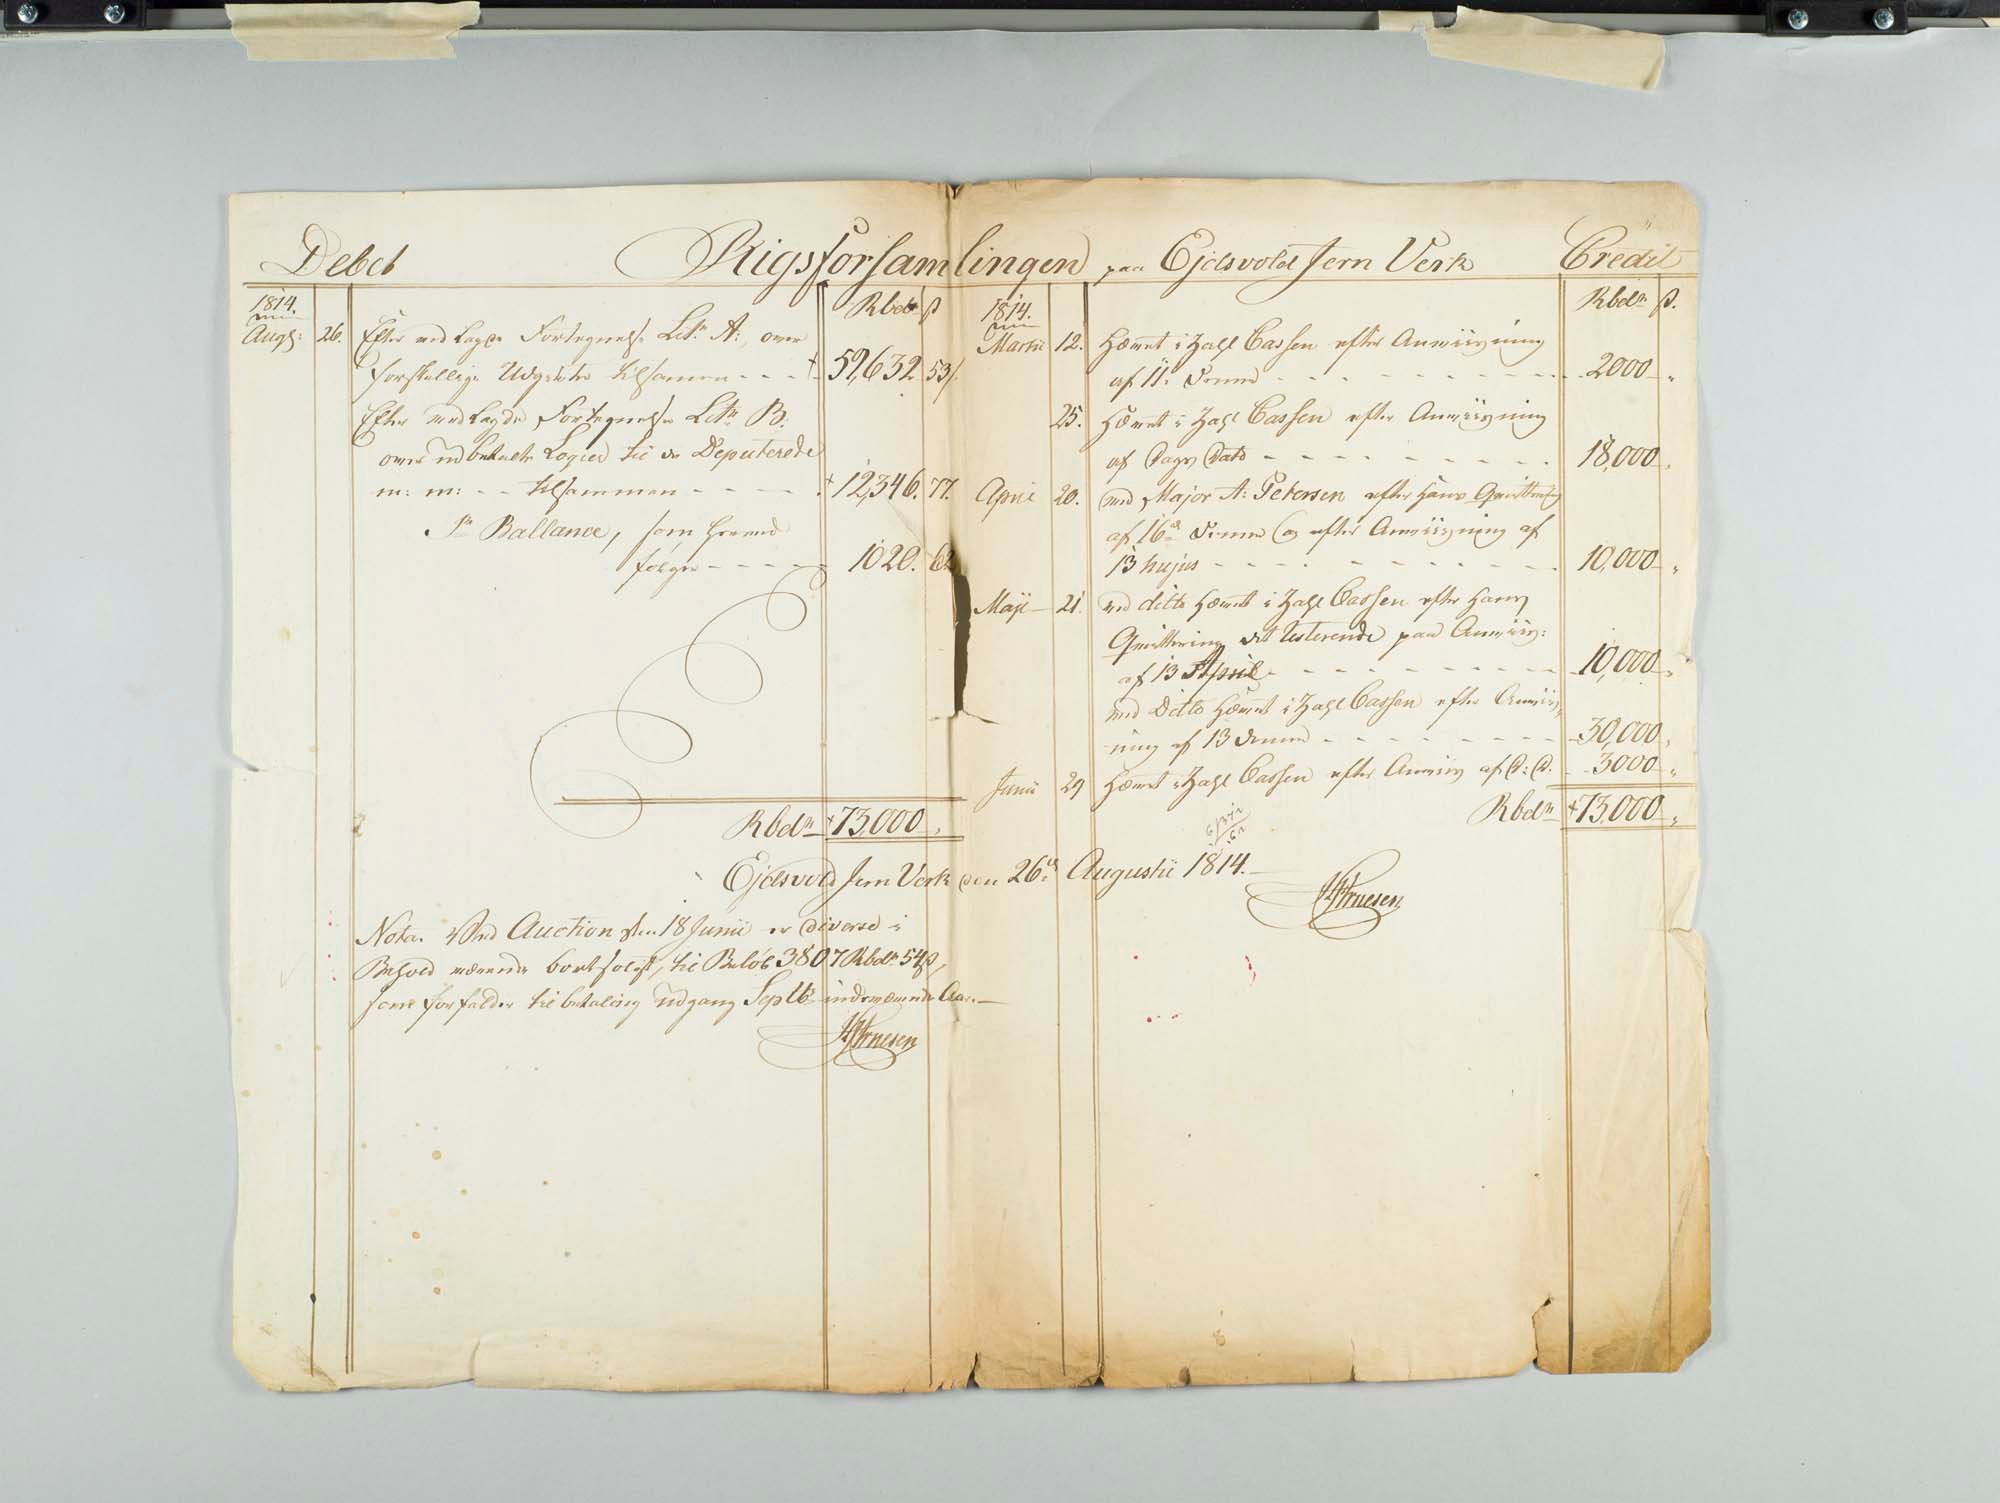 Debet Rigsforsamlingen paa Ejdsvold Jern Verk Credit
1814. Rbdr ß
Augs: 26. Efter vedlagde Fortegnelse Litr A:, over
forskellige Udgifter tilsamen - - - 59,632. 53
Efter vedlagde Fortegnelse Litr B:
over udbetalte Logies til de Deputerede
m: m: - - tilsammen - - - - 12,346. 77.
Pr Ballance, som herved
følger - - - - - 1020. 62
Rbdr 73,000 „
1814. Rbdr ß.
Martii 12. Hævet i Zahl Cassen efter Anviisning
af 11. Denne - - - - - - - - - 2000 „
25. Hævet i Zahl Cassen efter Anviisning
af Dags Dato - - - - - - - - - 18,000 „
April 20. ved Major A: Petersen efter Hans Qvittering
af 16d Denne og efter Anviisning af
13 hujus - - - - - - - - - - 10,000 „
Maji 21. ved ditto Hævet i Zahl Cassen efter Hans
Qvittering det resterende paa Anviis:
af 13 April - - - - - - - - - 10,000 „
ved Ditto Hævet i Zahl Cassen efter Anviis
ning af 13 Denne - - - - - - - - 30,000 „
Junii 29 Hævet i Zahl Cassen efter Anviis af D: D. - 3000 „
Rbdr 73,000 „
Ejdsvold Jern Verk den 26d Augustii 1814.
Nota. Ved Auction den 18 Junii er diverse i
Behold værende bortsolgt, til Beløb 3807 Rbdr 54 ß,
som forfalder til betaling udgang Septbr indeværende Aar. —